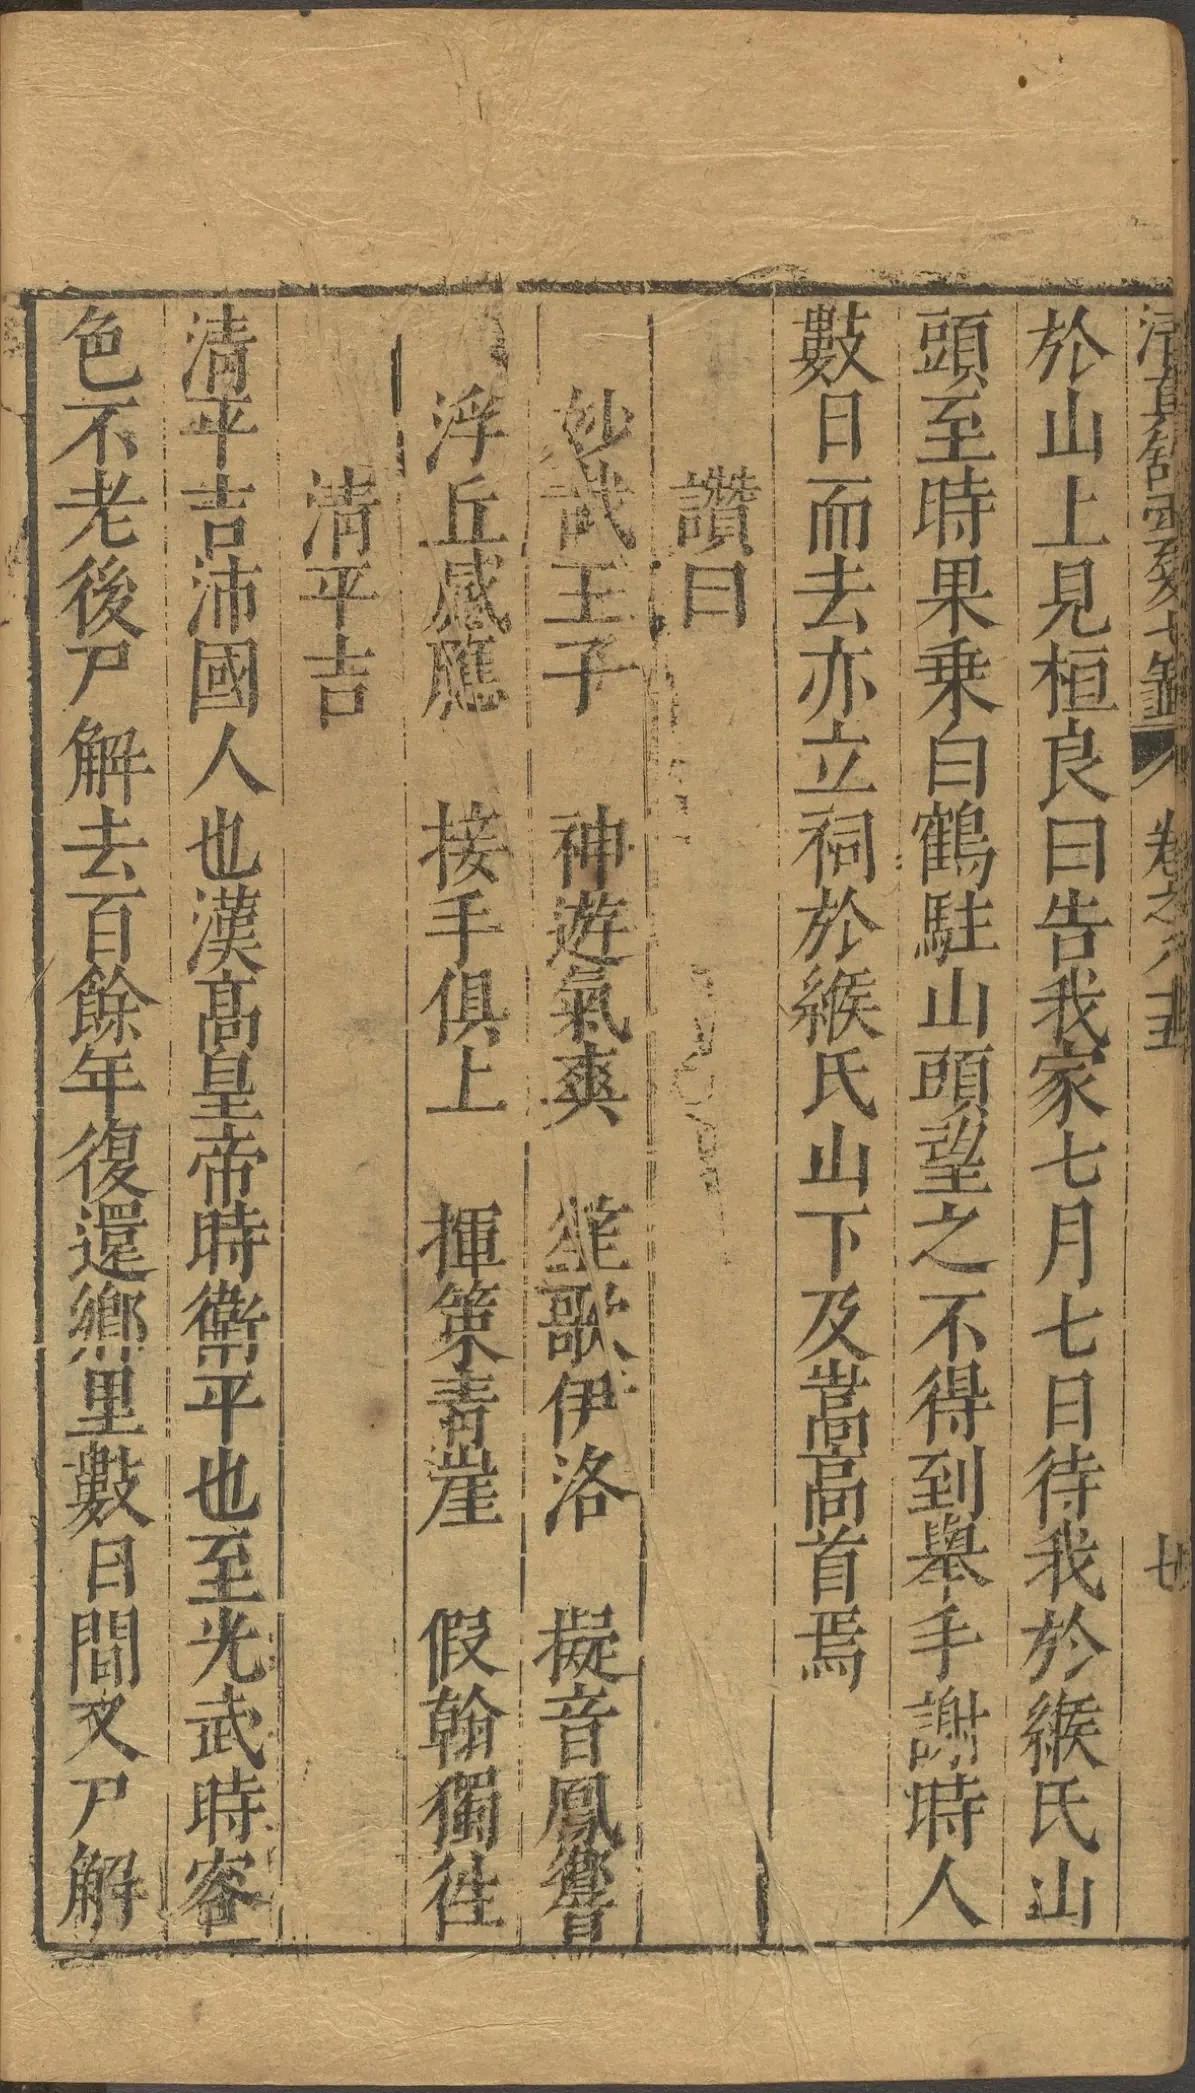 清真館雲笈七籤 卷之八十五 廿
於山上見桓良曰告我家七月七日待我於緱氏山
頭至時果乗白鶴駐山頭望之不得到舉手謝時人
數日而去亦立祠於緱氏山下及嵩高首焉
讚曰
妙哉王子 神遊氣爽 笙歌伊洛 擬音鳳響
浮丘感應 接手俱上 揮策青崖 假翰獨徃
清平吉
清平吉沛國人也漢高皇帝時衛平也至光武時容
色不老後尸解去百餘年復還鄉里數日間又尸解